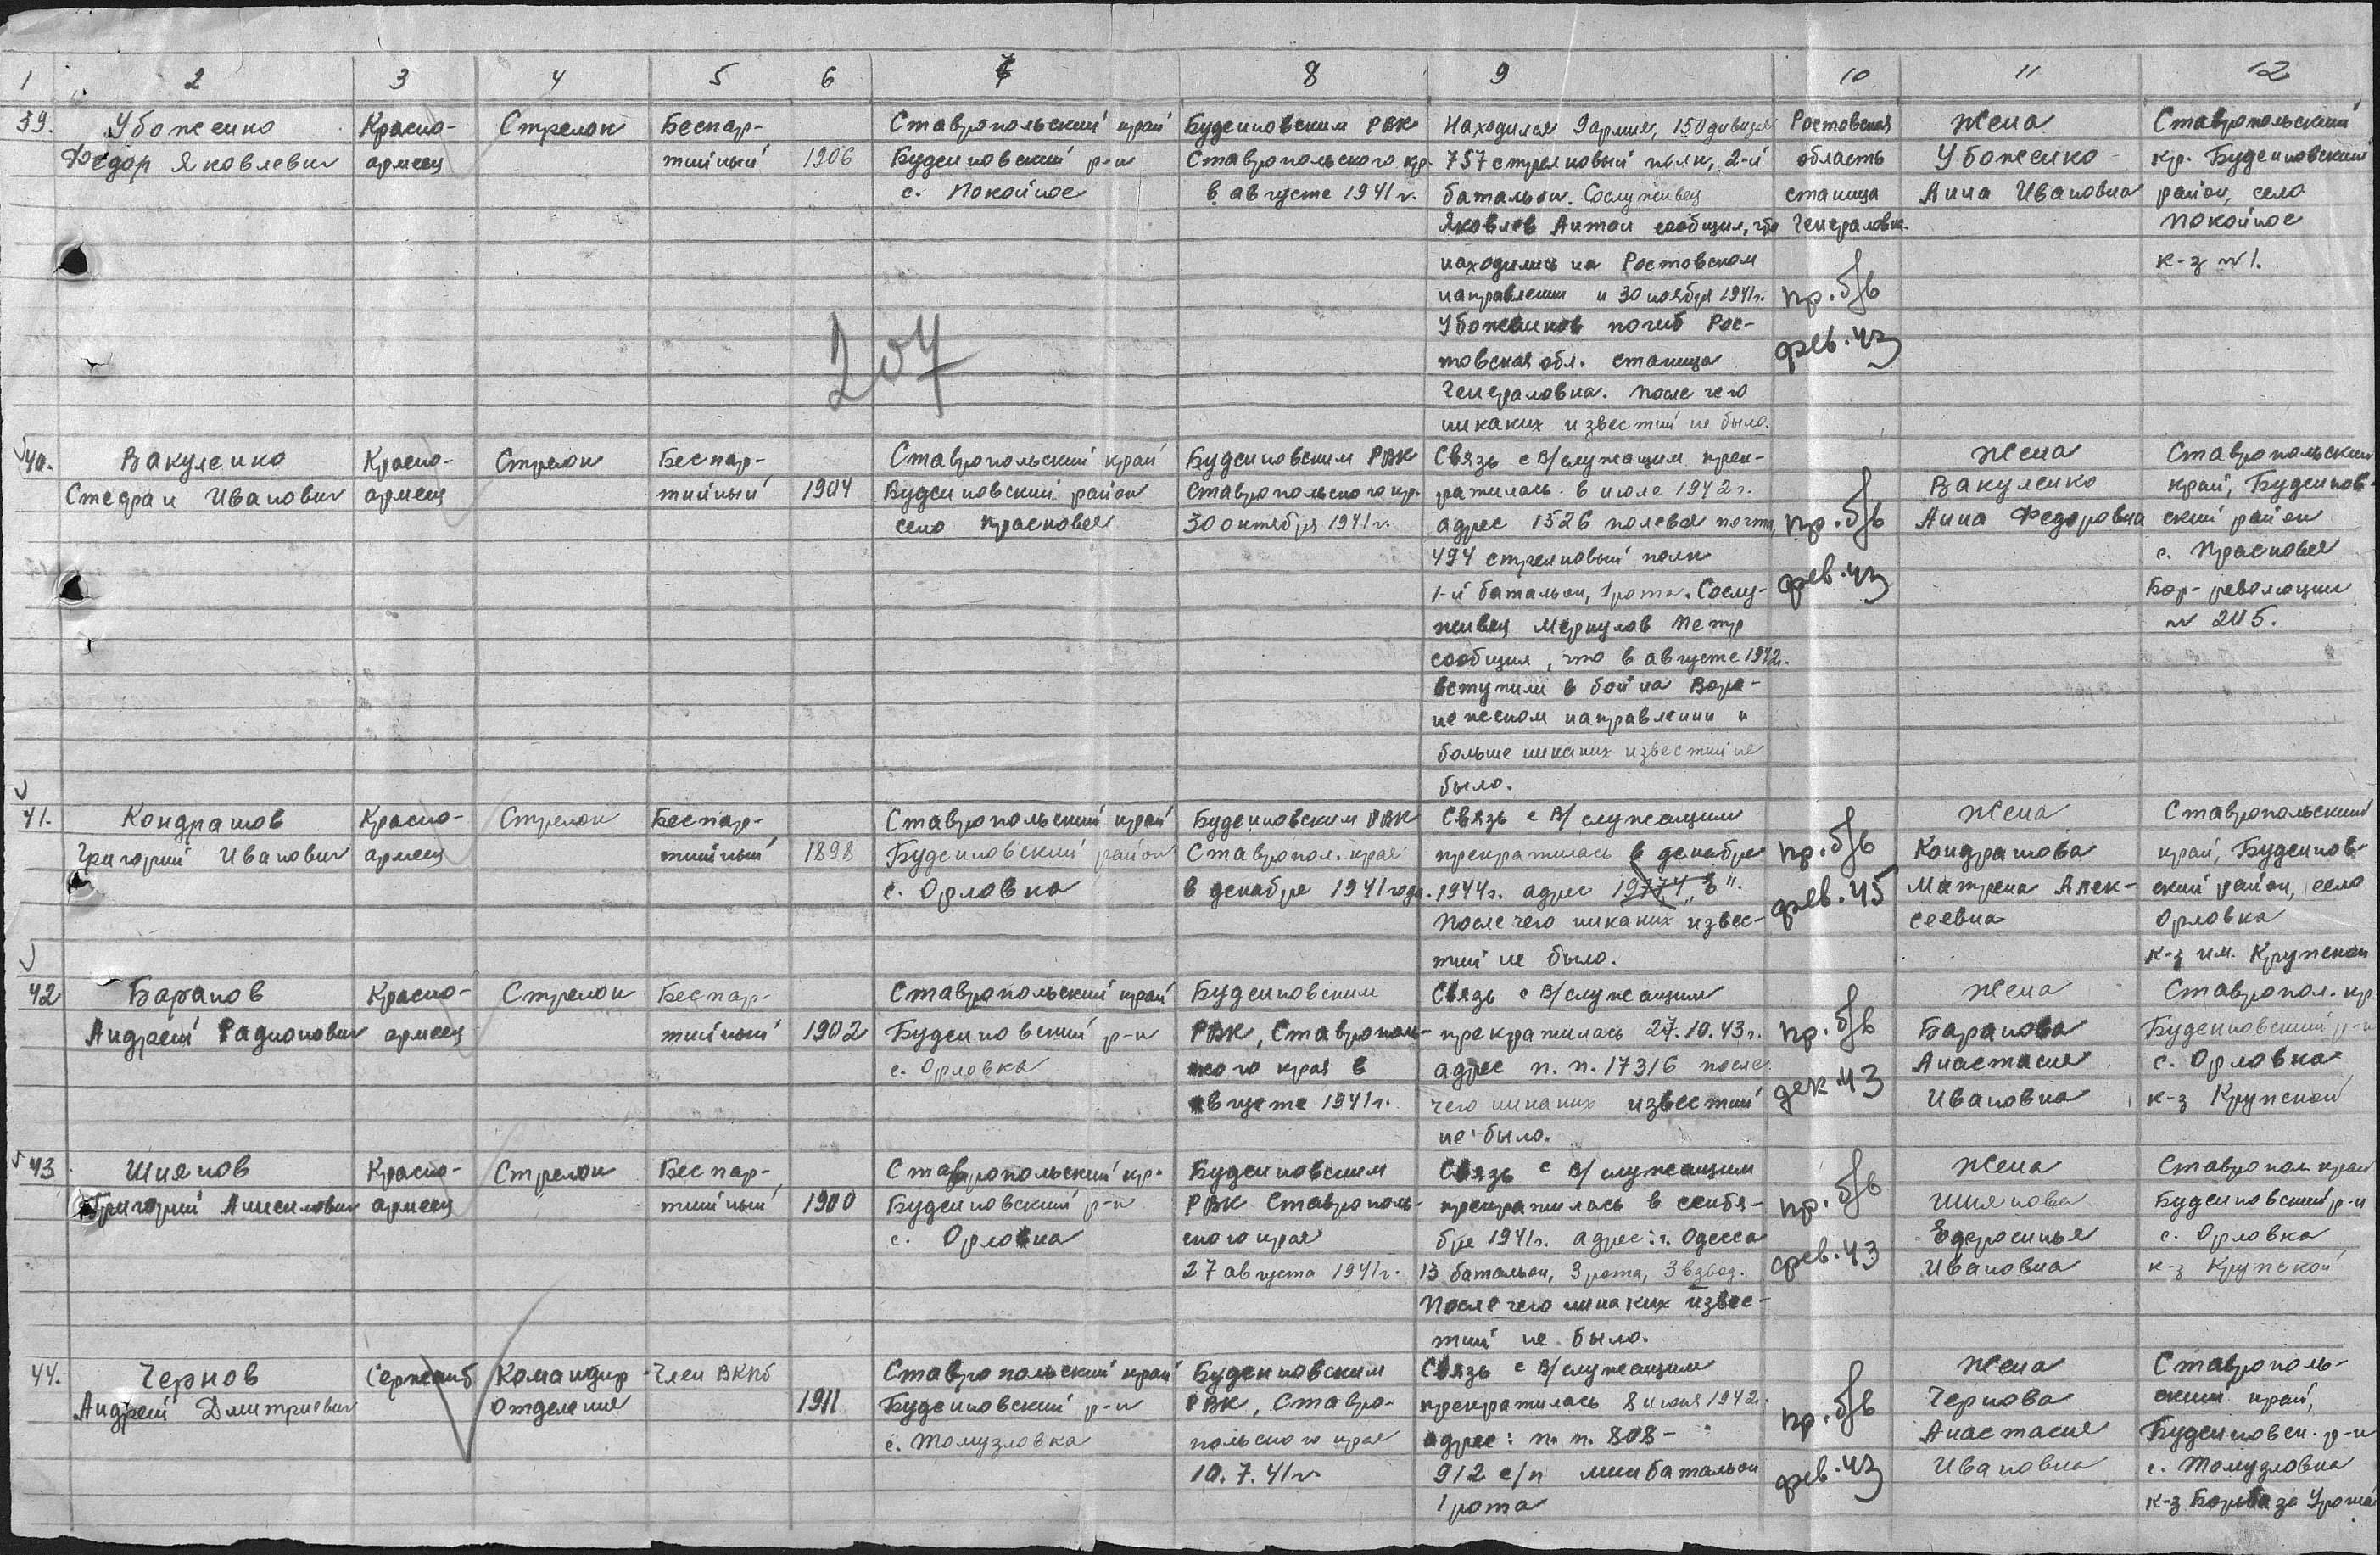 1 2 3 4 5 6 7 8 9 10 11 12
39.
Убоженко
Федор Яковлевич
Красно-
армеец
Стрелок
Беспар-
тийный
1906
Ставропольский край
Буденновский р-н
с. Покойное
Буденновским РВК
Ставропольского кр.
в августе 1941 г.
Находился 9 армия, 150 дивизия
757 стрелковый полк, 2-й
батальон. Сослуживец
Яковлев Антон сообщил, что
находились на Ростовском
направлении и 30 ноября 1941 г.
Убоженков погиб Рос-
товская обл. станица
Генераловка. После чего
никаких известий не было.
Ростовская
область
станица
Генераловка.
пр. б/в
фев. 43
Жена
Убоженко
Анна Ивановна
Ставропольский
кр. Буденновский
район, село
Покойное
к-з № 1.
207
40.
Вакуленко
Стефан Иванович
Красно-
армеец
Стрелок
Беспар-
тийный
1904
Ставропольский край
Буденновский район
село Прасковея
Буденновским РВК
Ставропольского кр.
30 октября 1941 г.
Связь с в/служащим прек-
ратилась в июле 1942 г.
адрес 1526 полевая почта,
494 стрелковый полк
1-й батальон, 1 рота. Сослу-
живец Меркулов Петр
сообщил, что в августе 1942 г.
вступили в бой на Воро-
нежском направлении и
больше никаких известий не
было.
пр. б/в
фев. 43
Жена
Вакуленко
Анна Федоровна
Ставропольский
край, Буденнов-
ский район
с. Прасковея
Бор-революции
№ 205.
41.
Кондрашов
Григорий Иванович
Красно-
армеец
Стрелок
Беспар-
тийный
1898
Ставропольский край
Буденновский район
с. Орловка
Буденновским РВК
Ставропол. края
в декабре 1941 года.
Связь с в/служащим
прекратилась в декабре
1944 г. адрес 19774 „З".
После чего никаких извес-
тий не было.
пр. б/в
фев. 45
Жена
Кондрашова
Матрена Алек-
сеевна
Ставропольский
край, Буденнов-
ский район, село
Орловка
к-з им. Крупской
42
Баранов
Андрей Радионович
Красно-
армеец
Стрелок
Беспар-
тийный
1902
Ставропольский край
Буденновский р-н
с. Орловка
Буденновским
РВК, Ставрополь-
ского края в
августе 1941 г.
Связь с в/служащим
прекратилась 27.10.43 г.
адрес п.п. 17316 после
чего никаких известий
не было.
пр. б/в
дек 43
Жена
Баранова
Анастасия
Ивановна
Ставропол. кр
Буденновский р-н
с. Орловка
к-з Крупской
43
Шиянов
Григорий Анисимович
Красно-
армеец
Стрелок
Беспар-
тийный
1900
Ставропольский кр.
Буденновский р-н
с. Орловка
Буденновским
РВК Ставрополь-
ского края
27 августа 1941 г.
Связь с в/служащим
прекратилась в сентя-
бре 1941 г. адрес: г. Одесса
13 батальон, 3 рота, 3 взвод.
После чего никаких извес-
тий не было.
пр. б/в
фев. 43
Жена
Шиянова
Ефросинья
Ивановна
Ставропол край
Буденновский р-н
с. Орловка
к-з Крупской
44.
Чернов
Андрей Дмитриевич
Сержант
Командир
отделения
Член ВКПб
1911
Ставропольский край
Буденновский р-н
с. Томузловка
Буденновским
РВК, Ставро-
польского края
10.7.41 г.
Связь с в/служащим
прекратилась 8 июня 1942 г.
адрес: п.п. 808-
912 с/п минбатальон
1 рота
пр. б/в
фев. 43
Жена
Чернова
Анастасия
Ивановна
Ставрополь-
ский край,
Буденновск. р-н
с. Томузловка
к-з Борьба за Урожай